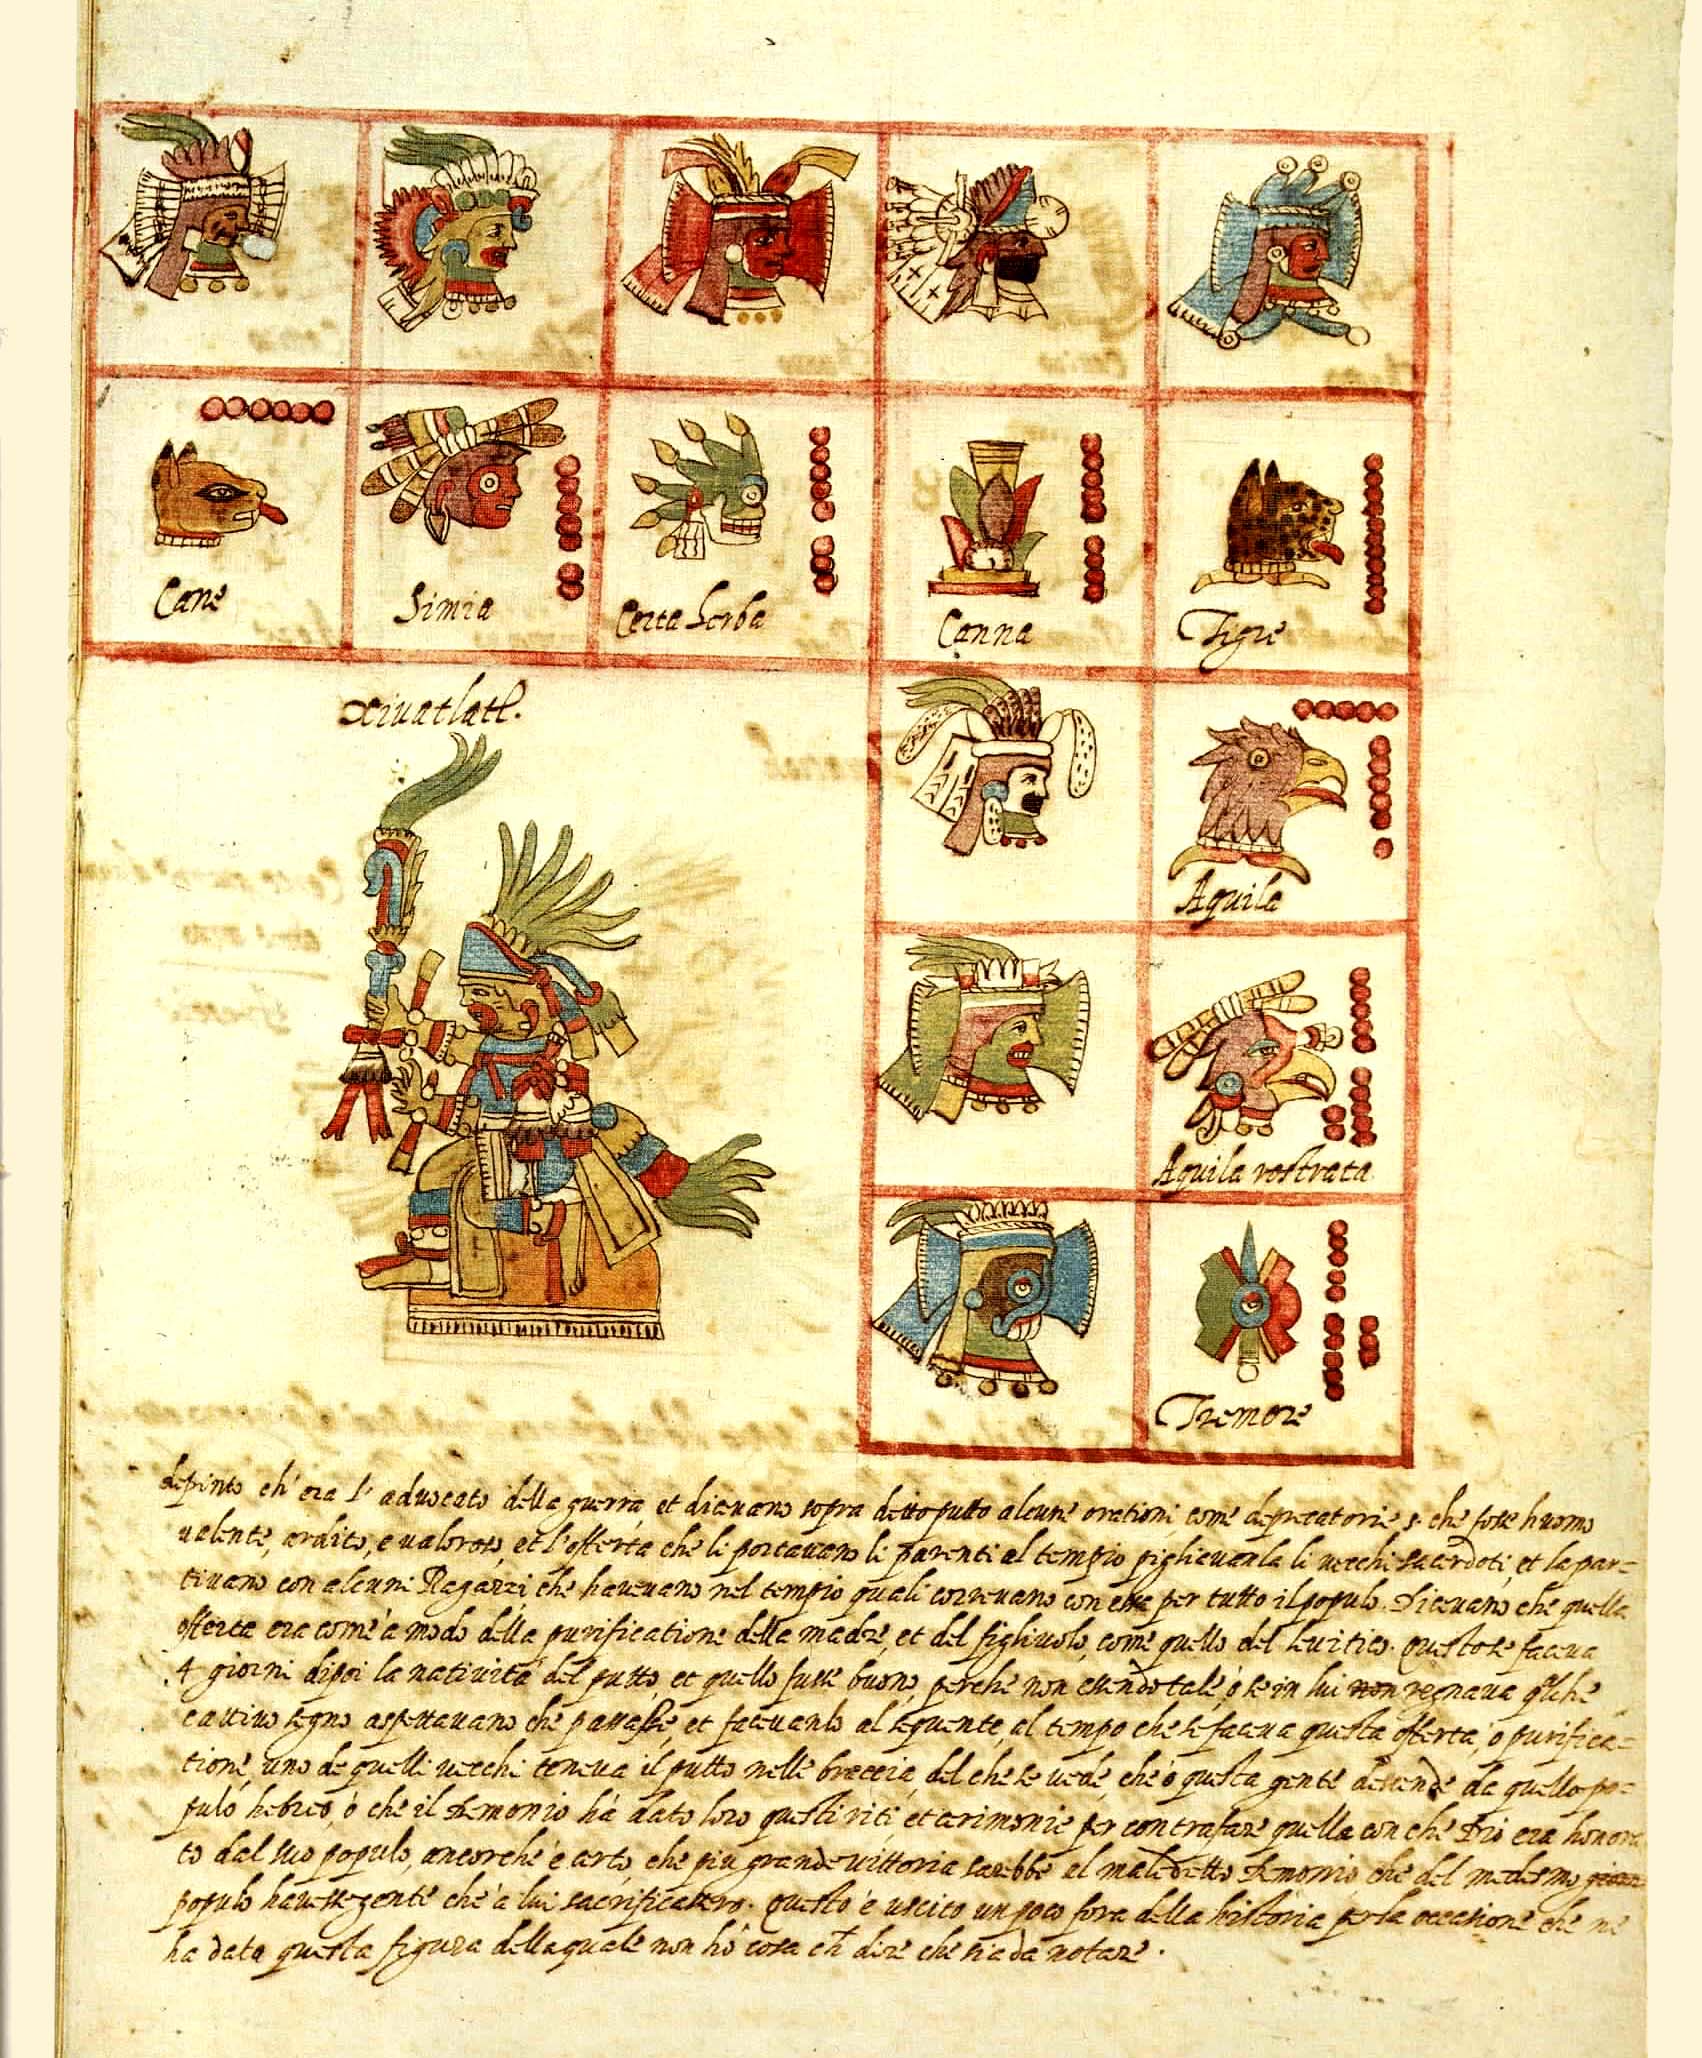 Cane
Simia
Certa herba
Canna
Tigre
xiuatlatl.
Aquila
Aquila rostrata
Tremore
depinto ch' era l' aduocato della guerra, et diceuano sopra detto putto alcune orationi, come deprecatorie, che fosse huomo
ualente, ardito, e ualoroso, et l'offerta che li portauano li parenti al tempio pigliauanla li uecchi sacerdoti, et la par=
tiuano con alcuni Ragazzi, che haueuano nel tempio quali correuano con essa per tutto il populo. Diceuano che quella
offerta era come à modo della purificatione della madre, et del figliuolo, come quello del leuitico. Questo se faceua
4 giorni dipoi la natiuità del putto, et quello fusse buono, perche non essendo tale, ò se in lui non regnaua qlche
cattiuo segno aspettauano che passasse, et faceuanlo al seguente, al tempo che se faceua questa offerta, o purifica=
tione, uno de quelli uecchi teneua il putto nelle braccia, del che se uede, che ò questa gente descende da quello po=
pulo hebreo, ò che il Demonio hà dato loro questi riti, et cerimonie per contrafare quella con che Dio era honora
to dal suo populo, ancorche è certo, che più grande uittoria sarebbe al maledetto Demonio, che del medesmo
populo hauesse gente che à lui sacrificassero. Questo è uscito un poco fora della historia per la occasione che ne
ha data questa figura della quale non hò cosa ch dire che sia da notare.